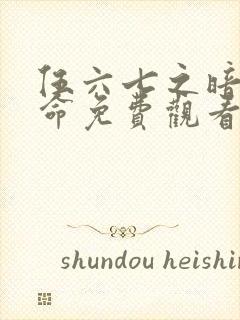 伍六七之暗
命免費觀看
shundou heishin